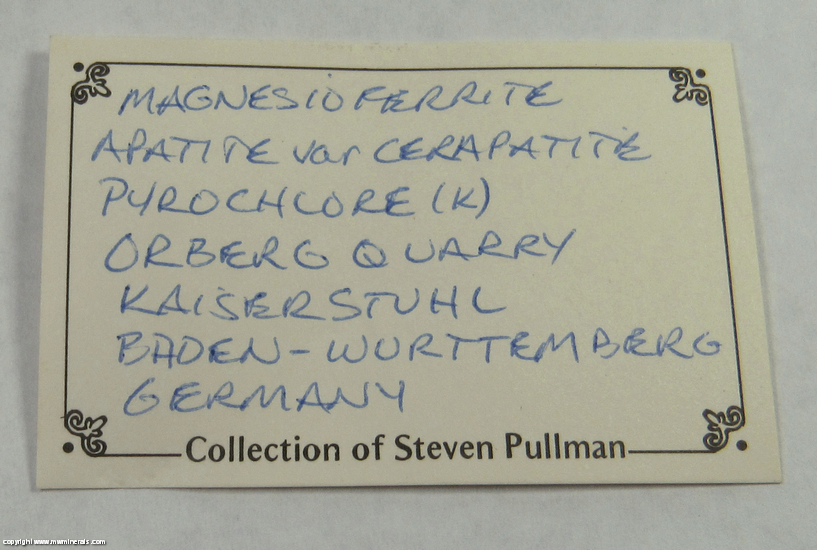 MAGNESIOFERRITE
APATITE var CERAPATITE
PYROCHLORE (K)
ORBERG QUARRY
KAISERSTUHL
BADEN-WURTTEMBERG
GERMANY
Collection of Steven Pullman
copyright www.mwminerals.com